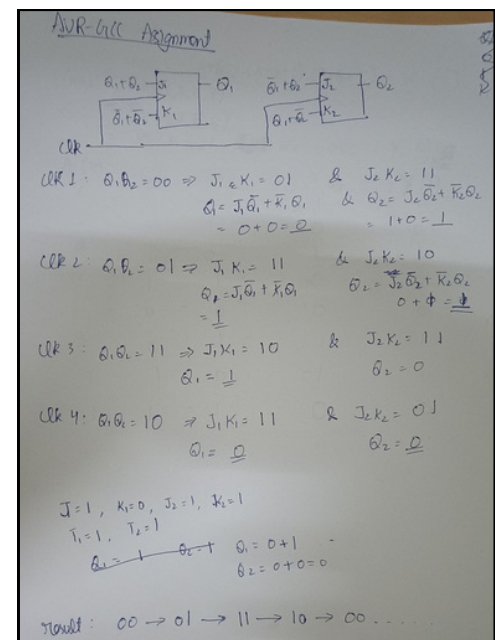 AVR-GCC Assignment
Q1+Q2 J1 Q1 Q̄1+Q2 J2 Q2
Q̄1+Q̄2 K1 Q1+Q̄ K2
Clk
Clk 1: Q1Q2 = 00 ⇒ J1 & K1 = 01 & J2K2 = 11
Q1 = J1Q̄1 + K̄1Q1 & Q2 = J2Q̄2 + K̄2Q2
= 0+0 = 0 = 1+0 = 1
Clk 2: Q1Q2 = 01 ⇒ J1K1 = 11 & J2K2 = 10
= J1Q̄1 + K̄1Q1 Q2 = J2Q̄2 + K̄2Q2
= 1
Clk 3: Q1Q2 = 11 ⇒ J1K1 = 10 & J2K2 = 11
Q1 = 1 Q2 = 0
Clk 4: Q1Q2 = 10 ⇒ J1K1 = 11 & J2K2 = 01
Q1 = 0 Q2 = 0
J=1, K1=0, J2=1, K2=1
T1=1, T2=1
Q1 = 1 Q2=1 Q1 = 0+1
Q2 = 0+0=0
result: 00 → 01 → 11 → 10 → 00 .......